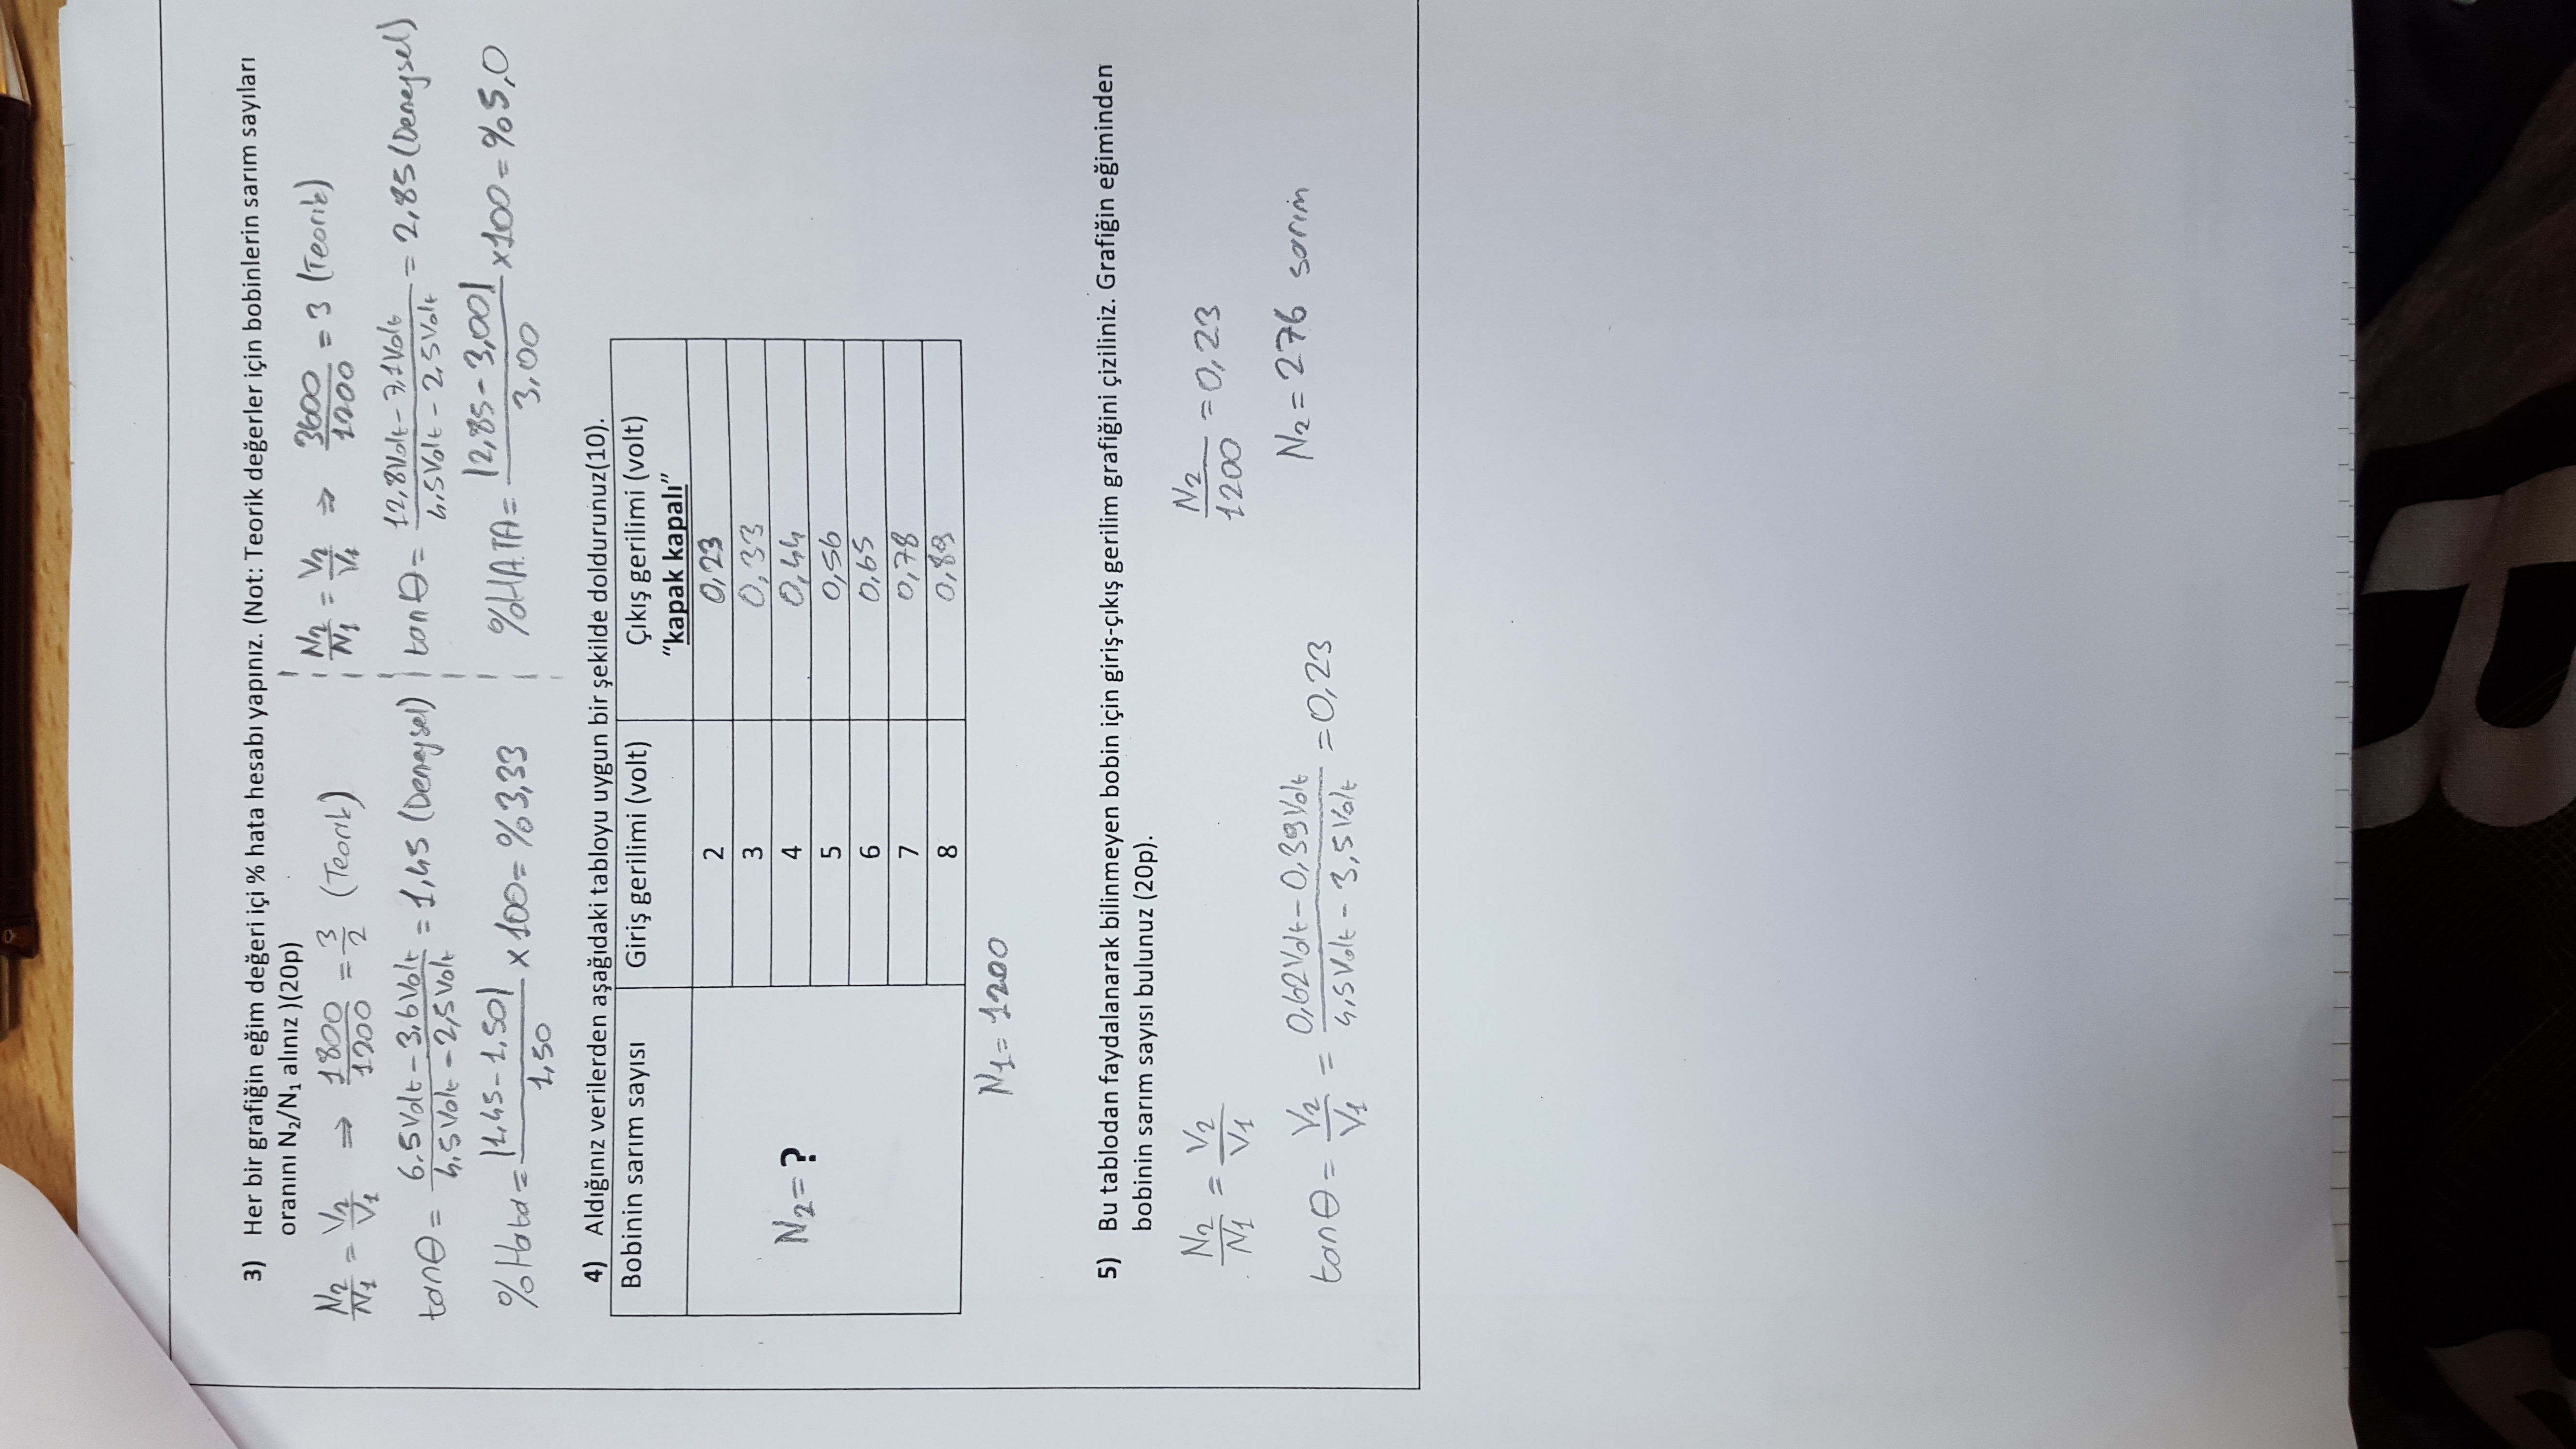 3) Her bir grafiğin eğim değeri içi % hata hesabı yapınız. (Not: Teorik değerler için bobinlerin sarım sayıları
oranını N₂/N₁ alınız )(20p)
N₂/N₁ = V₂/V₁ ⇒ 1800/1200 = 3/2 (Teorik)
tanθ = (6,5Volt - 3,6Volt)/(4,5Volt - 2,5Volt) = 1,45 (Deneysel)
%Hata = |1,45 - 1,50|/1,50 x 100 = %3,33
N₂/N₁ = V₂/V₁ ⇒ 3600/1200 = 3 (Teorik)
tanθ = (12,8Volt - 7,1Volt)/(4,5Volt - 2,5Volt) = 2,85 (Deneysel)
%HATA = |2,85 - 3,00|/3,00 x100 = %5,0
4) Aldığınız verilerden aşağıdaki tabloyu uygun bir şekilde doldurunuz(10).
Bobinin sarım sayısı Giriş gerilimi (volt) Çıkış gerilimi (volt)
"kapak kapalı"
2 0,23
3 0,33
N₂ = ? 4 0,44
5 0,56
6 0,65
7 0,78
8 0,89
N₁ = 1200
5) Bu tablodan faydalanarak bilinmeyen bobin için giriş-çıkış gerilim grafiğini çiziliniz. Grafiğin eğiminden
bobinin sarım sayısı bulunuz (20p).
N₂/N₁ = V₂/V₁
tanθ = V₂/V₁ = (0,62Volt - 0,39Volt)/(4,5Volt - 3,5Volt) = 0,23
N₂/1200 = 0,23
N₂ = 276 sarım